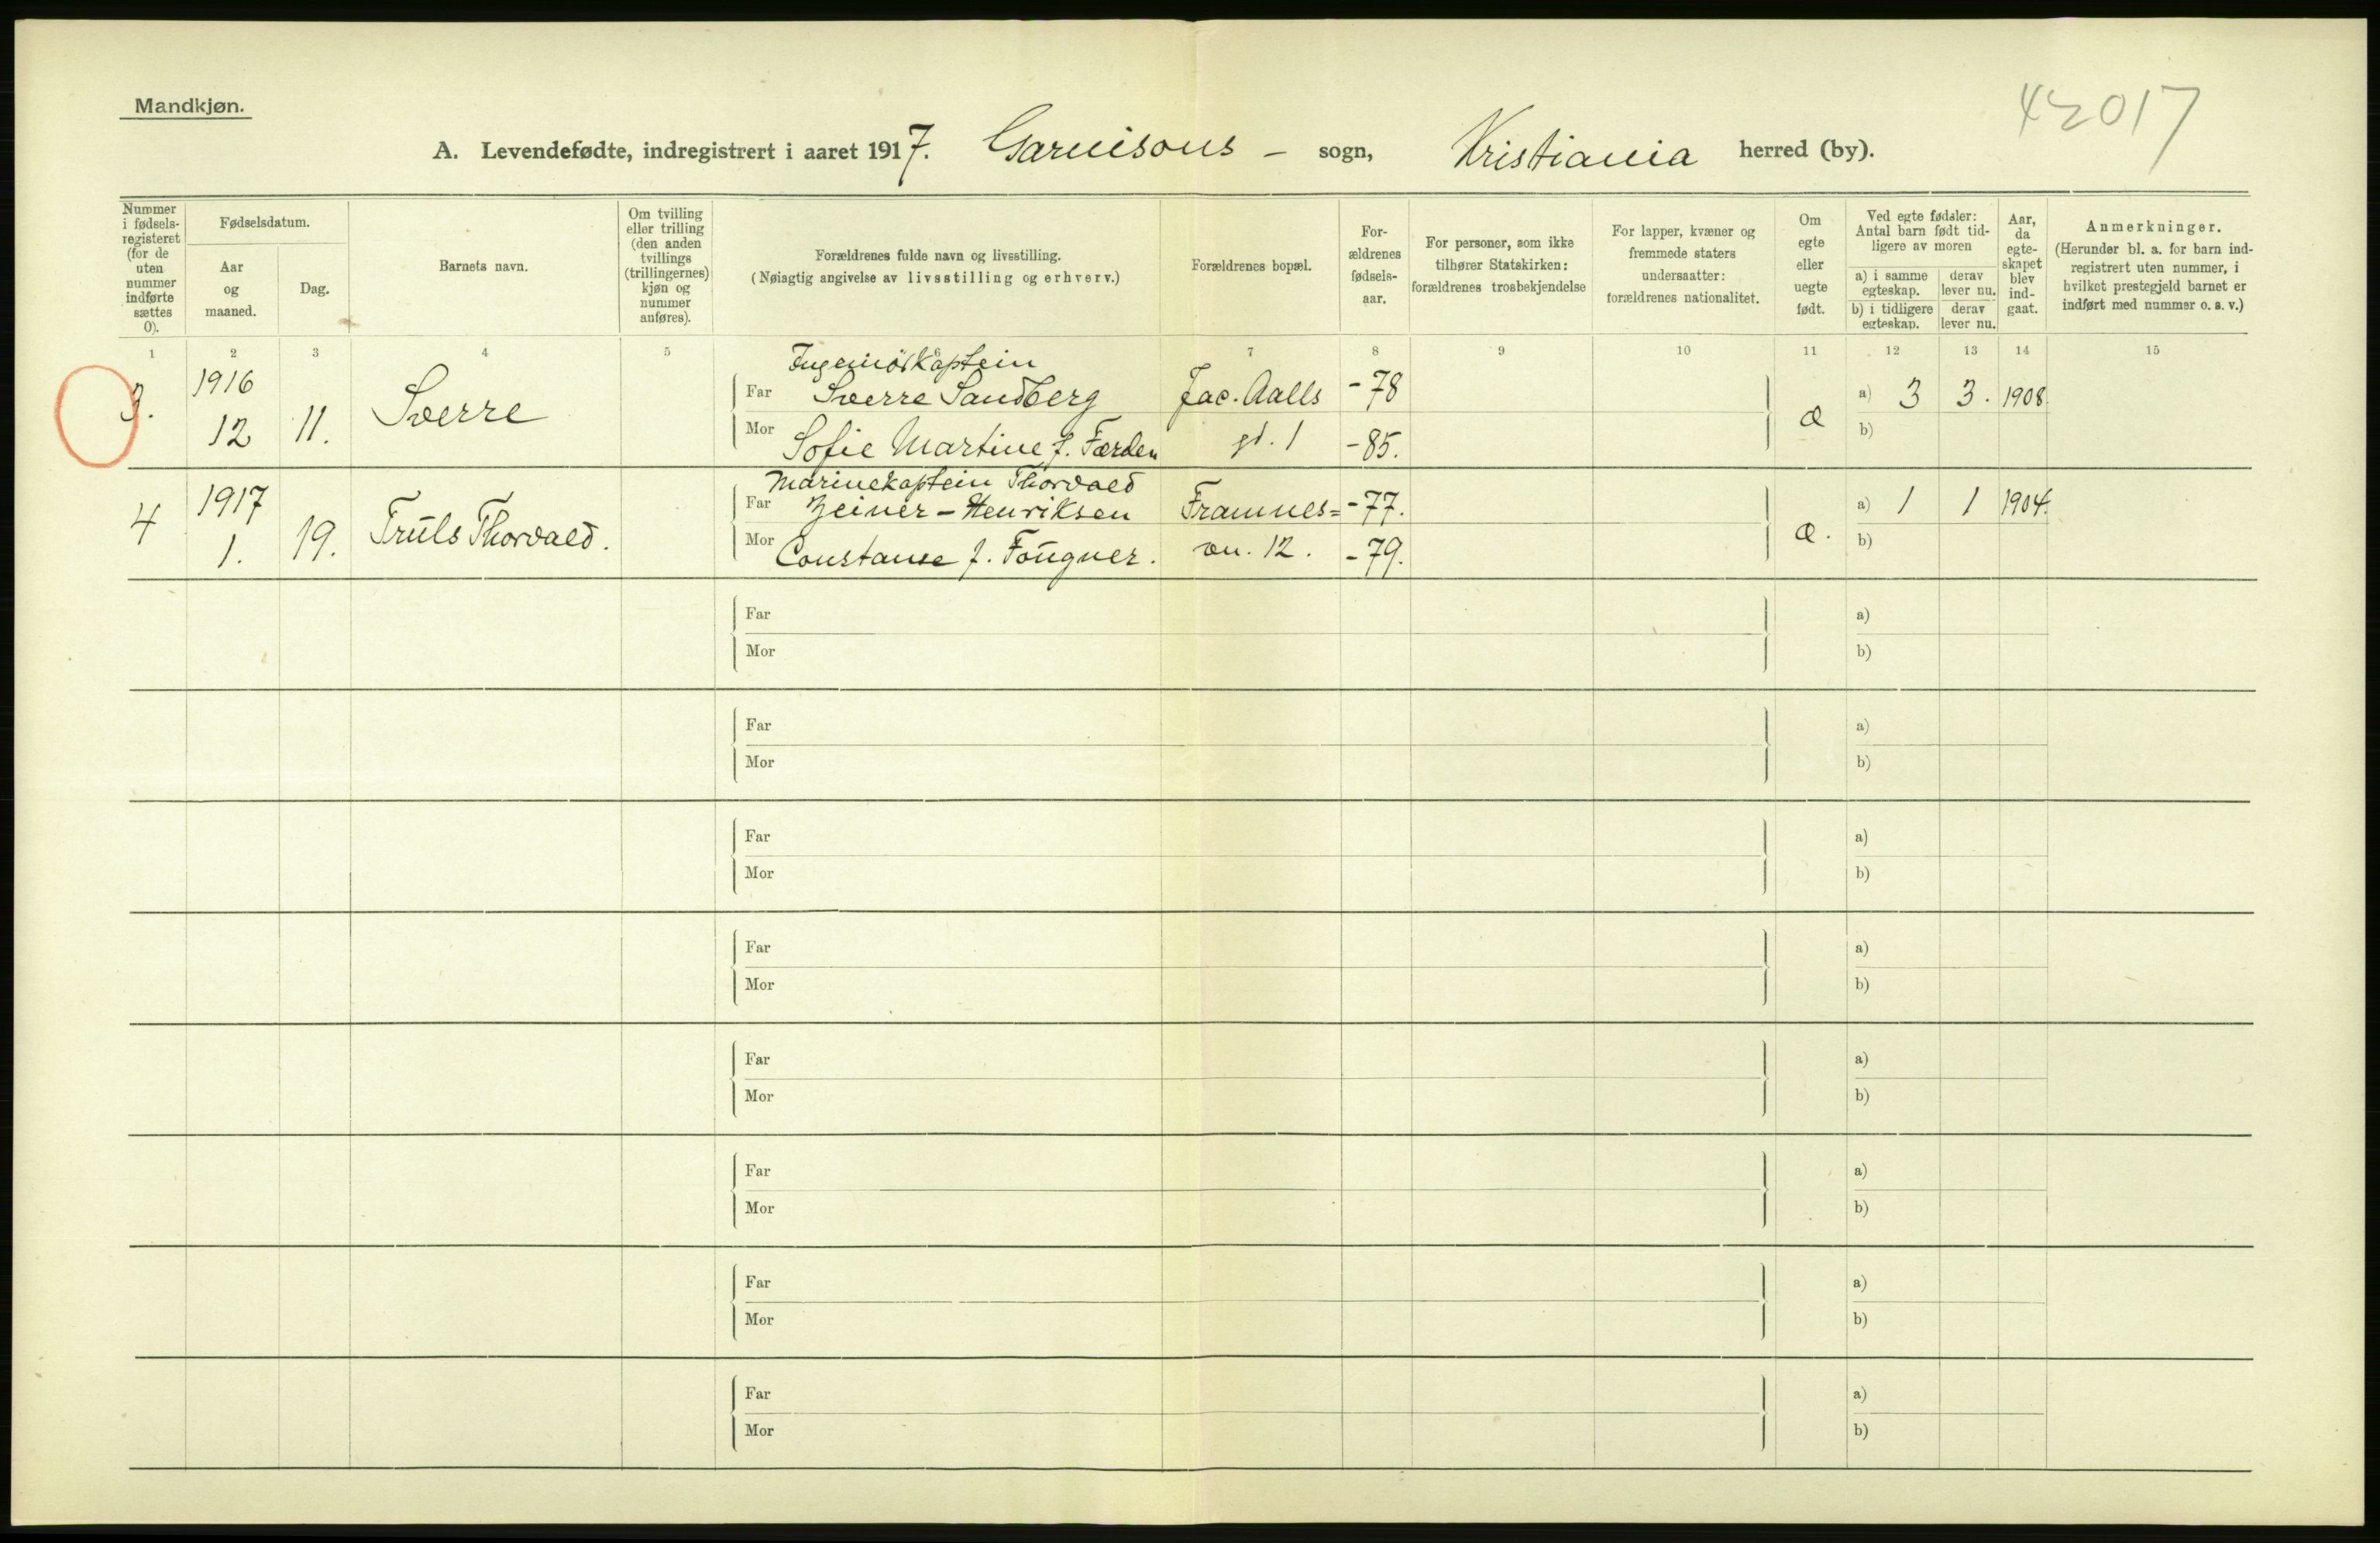 Mandkjøn.
42017
A. Levendefødte, indregistrert i aaret 1917. Garnisons – sogn, Kristiania herred (by).
Nummer i fødsels-registeret (for de uten nummer indførte sættes 0).
Fødselsdatum.
Aar og maaned.
Dag.
Barnets navn.
Om tvilling eller trilling (den anden tvillings (trillingernes) kjøn og nummer anføres).
Forældrenes fulde navn og livsstilling.
(Nøiagtig angivelse av livsstilling og erhverv.)
Forældrenes bopæl.
For-ældrenes fødsels-aar.
For personer, som ikke tilhører Statskirken: forældrenes trosbekjendelse
For lapper, kvæner og fremmede staters undersaatter: forældrenes nationalitet.
Om egte eller uegte født.
Ved egte fødsler: Antal barn født tid-ligere av moren
a) i samme egteskap.
derav lever nu.
b) i tidligere egteskap.
derav lever nu.
Aar, da egte-skapet blev ind-gaat.
Anmerkninger.
(Herunder bl. a. for barn ind-registrert uten nummer, i hvilket prestegjeld barnet er indført med nummer o. s. v.)
1 2 3 4 5 6 7 8 9 10 11 12 13 14 15
Ingeniørkaptein
3. 1916 Far Sverre Sandberg Jac. Aalls - 78 a) 3 3. 1908.
12 11. Sverre æ
Mor Sofie Martine f. Førden gt. 1 - 85. b)
Marinekaptein Thorvald
4 1917 Far Zeiner - Henriksen Framnes= - 77. a) 1 1 1904.
1. 19. Truls Thorvald. æ.
Mor Constanse f. Fougner. vn. 12. - 79. b)
Far a)
Mor b)
Far a)
Mor b)
Far a)
Mor b)
Far a)
Mor b)
Far a)
Mor b)
Far a)
Mor b)
Far a)
Mor b)
Far a)
Mor b)